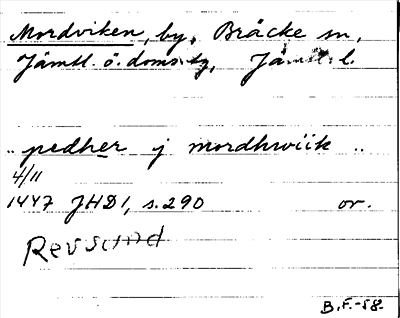 Mordviken, by, Bräcke sn,
Jämtl. ö. doms. tg, Jämtl. l.
.. pedher j mordhwiik ..
4/11
1447 JHD1, s. 290 or.
Revsund
B.F.-58.